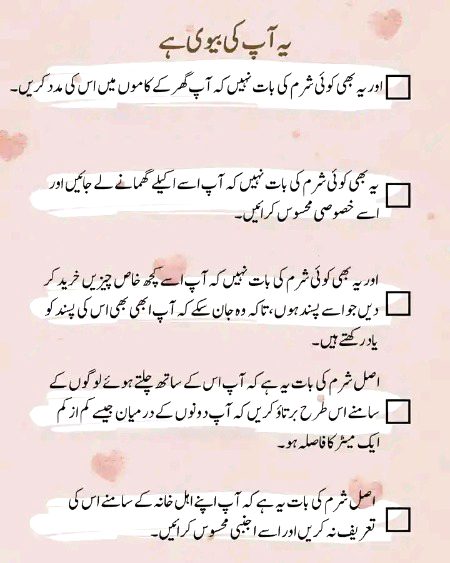 یہ آپ کی بیوی ہے
اور یہ بھی کوئی شرم کی بات نہیں کہ آپ گھر کے کاموں میں اس کی مدد کریں۔
یہ بھی کوئی شرم کی بات نہیں کہ آپ اسے اکیلے گھمانے لے جائیں اور
اسے خصوصی محسوس کرائیں۔
اور یہ بھی کوئی شرم کی بات نہیں کہ آپ اسے کچھ خاص چیزیں خرید کر
دیں جو اسے پسند ہوں، تاکہ وہ جان سکے کہ آپ ابھی بھی اس کی پسند کو
یاد رکھتے ہیں۔
اصل شرم کی بات یہ ہے کہ آپ اس کے ساتھ چلتے ہوئے لوگوں کے
سامنے اس طرح برتاؤ کریں کہ آپ دونوں کے درمیان جیسے کم از کم
ایک میٹر کا فاصلہ ہو۔
اصل شرم کی بات یہ ہے کہ آپ اپنے اہل خانہ کے سامنے اس کی
تعریف نہ کریں اور اسے اجنبی محسوس کرائیں۔